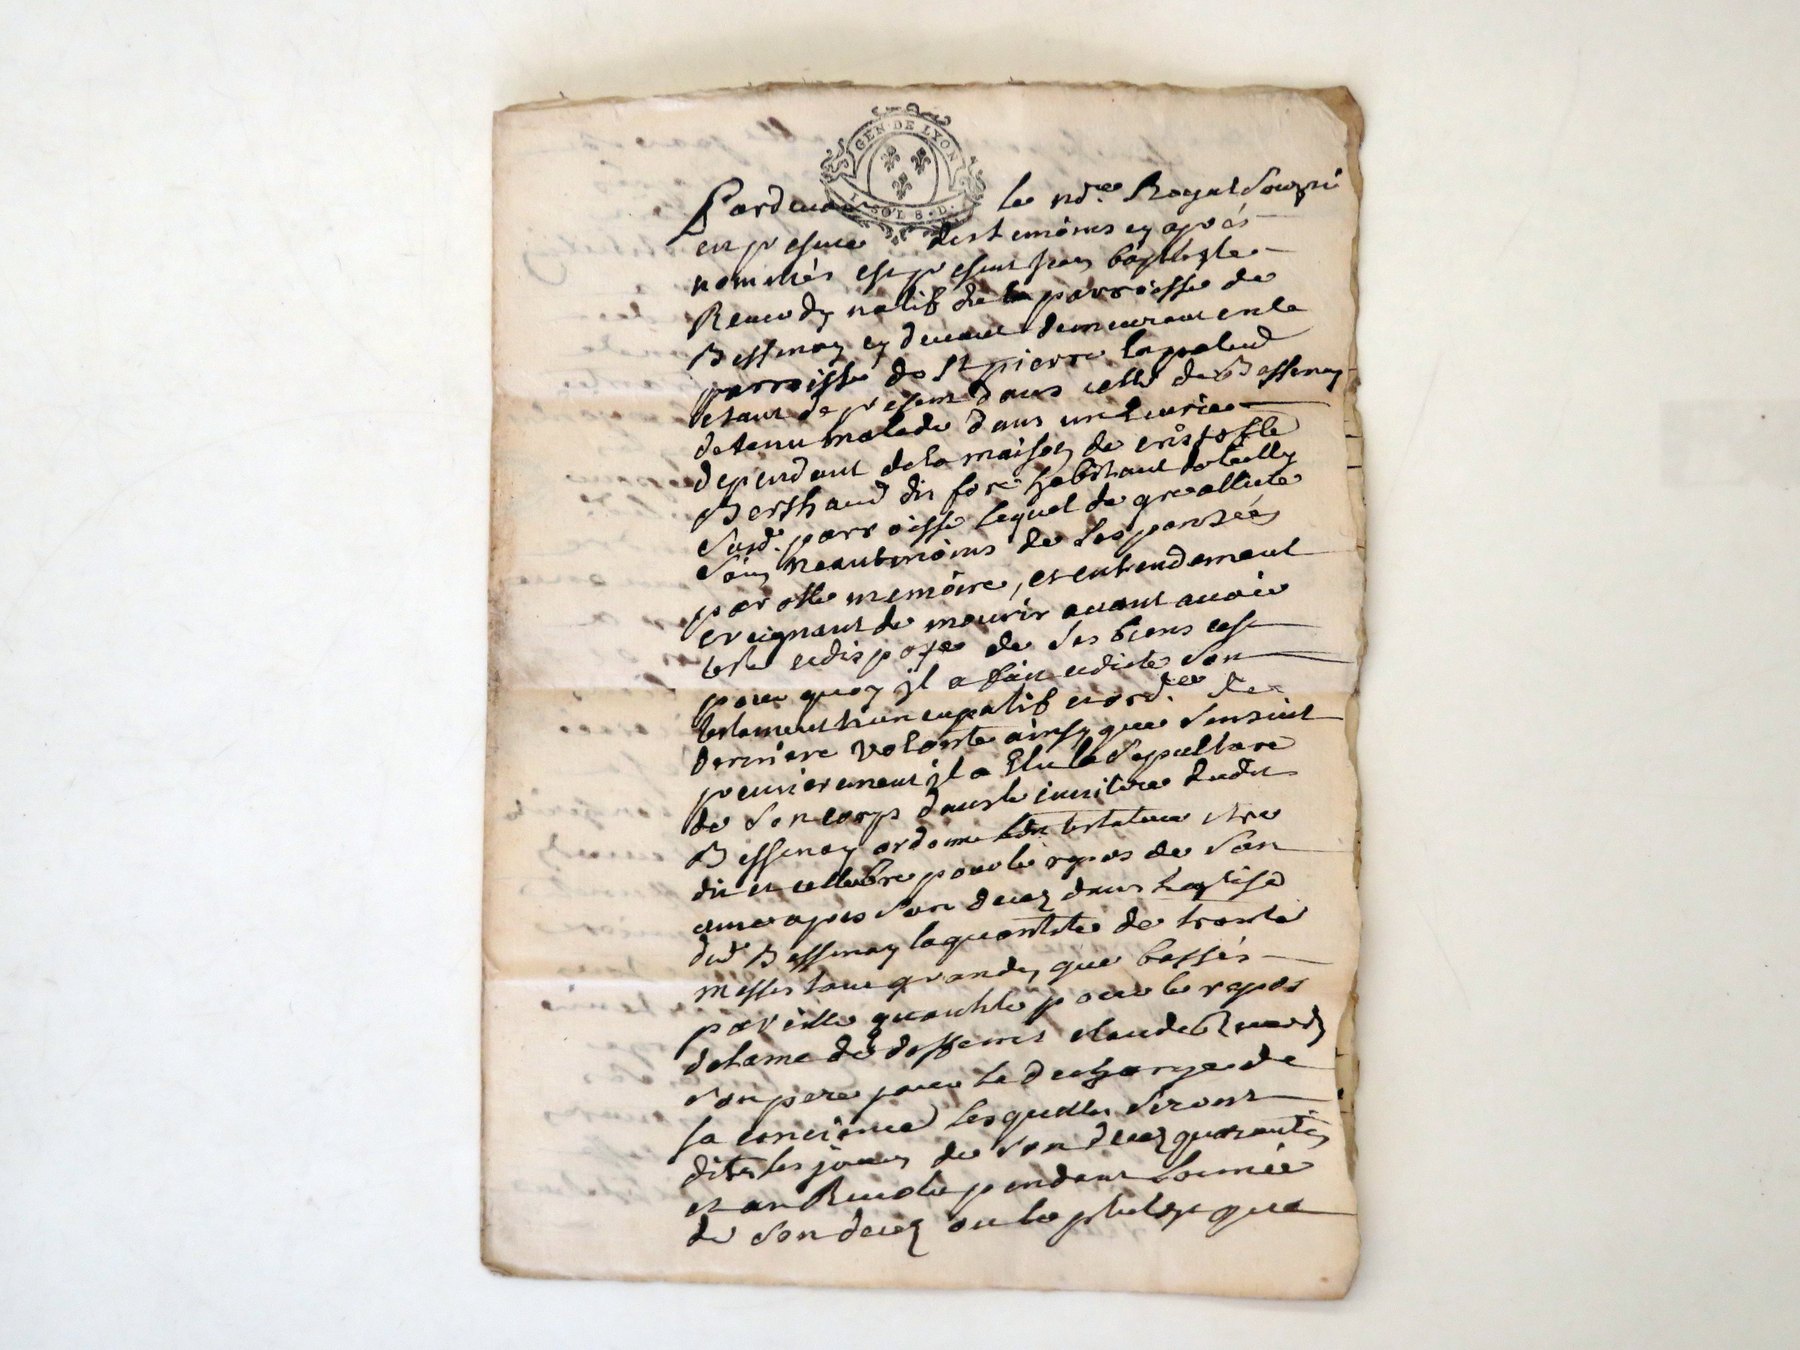 GEN·DE LYON
1·SOL 8·D·
Pardevant le no.re Royal Sousig.né
en presence des temoins cy apres
nommés est present jean baptiste
natif de la parroisse de
Bessenay cy devant demeurant en la
parroisse de St pierre lapalud
estant de present dans celle de Bessenay
detenu malade dans un
dependant de la maison de cristofle
Berthaud dit habitant
Susd. parroisse lequel de gre
Sain neantmoins de Ses pansées
parolle memoire, et entendement
creignant de mourir avant avoir
teste et dispose de Ses biens cest
pour quoy jl a fait et dicte Son
testament nuncupatif et ord.ce de
derniere volonte ainsy que Sensuit
premierement jl a Elu la Sepulture
de Son corps dans le cimitiere dudit
Bessenay ordonne led. testateur etre
dit et cellebre pour le repos de Son
ame apres Son decez dans leglise
dud Bessenay la quantite de trante
messes tant grandes que basses
pareille quantite pour le repos
de lame de deffeunt claude
Son pere pour la decharge de
sa concience lesquelles Seront
dites les jours de Son decez quarantin
et an Revolu pendant lannée
de Son decez ou le plutost que